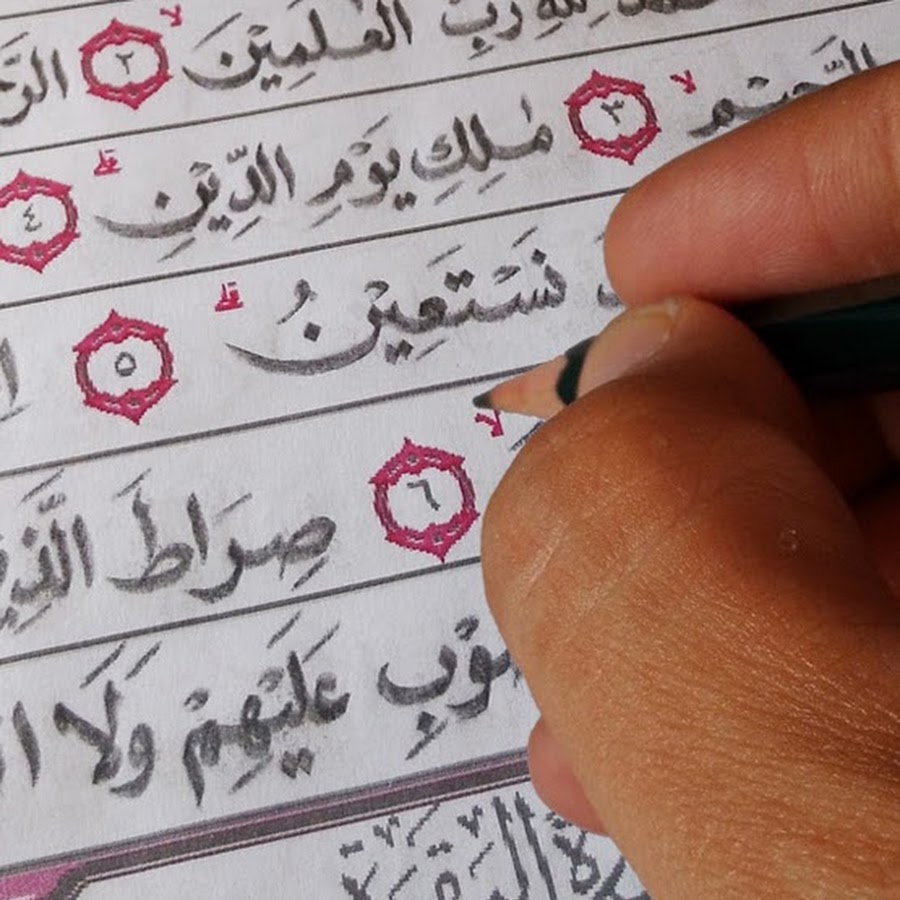 لِلّٰهِ رَبِّ الْعٰلَمِيْنَ ۙ ٢ الرَّ
الرَّحِيْمِ ۙ ٣ مٰلِكِ يَوْمِ الدِّيْنِ ۗ ٤
نَسْتَعِيْنُ ۗ ٥ اِ
ۙ ٦ صِرَاطَ الَّذِ
ـوْبِ عَلَيْهِمْ وَلَا ا
الْبَقَرَة